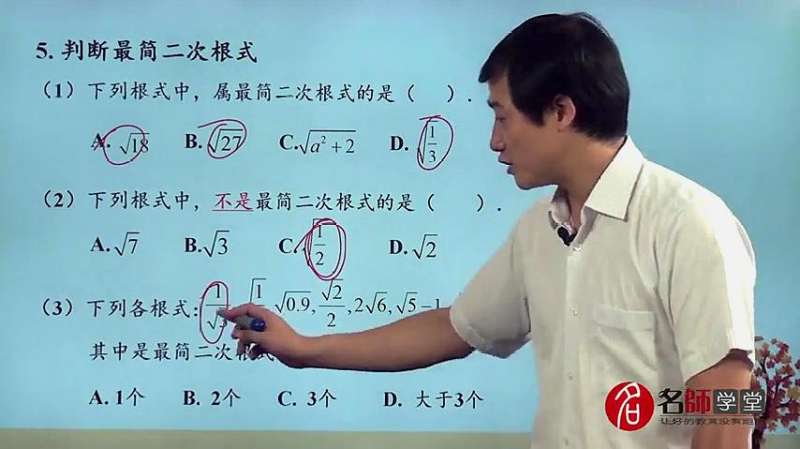 5. 判断最简二次根式
（1）下列根式中，属最简二次根式的是（ ）.
A. √18 B. √27 C. √(a²+2) D. √(1/3)
（2）下列根式中，不是最简二次根式的是（ ）.
A. √7 B. √3 C. √(1/2) D. √2
（3）下列各根式: √0.9, √2/2, 2√6, √5-1
其中是最简二次根式
A. 1个 B. 2个 C. 3个 D. 大于3个
名師学堂